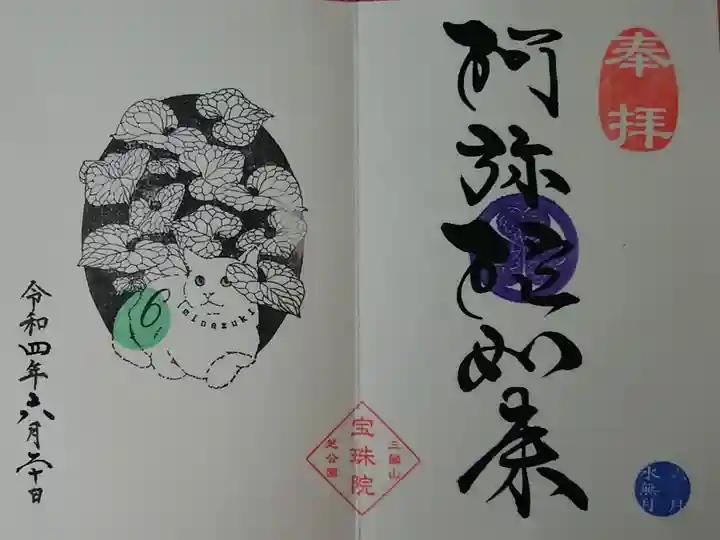 奉拝
阿弥陀如来
六月
水無月
三國山
宝珠院
芝公園
6
minazuki
令和四年六月二十日